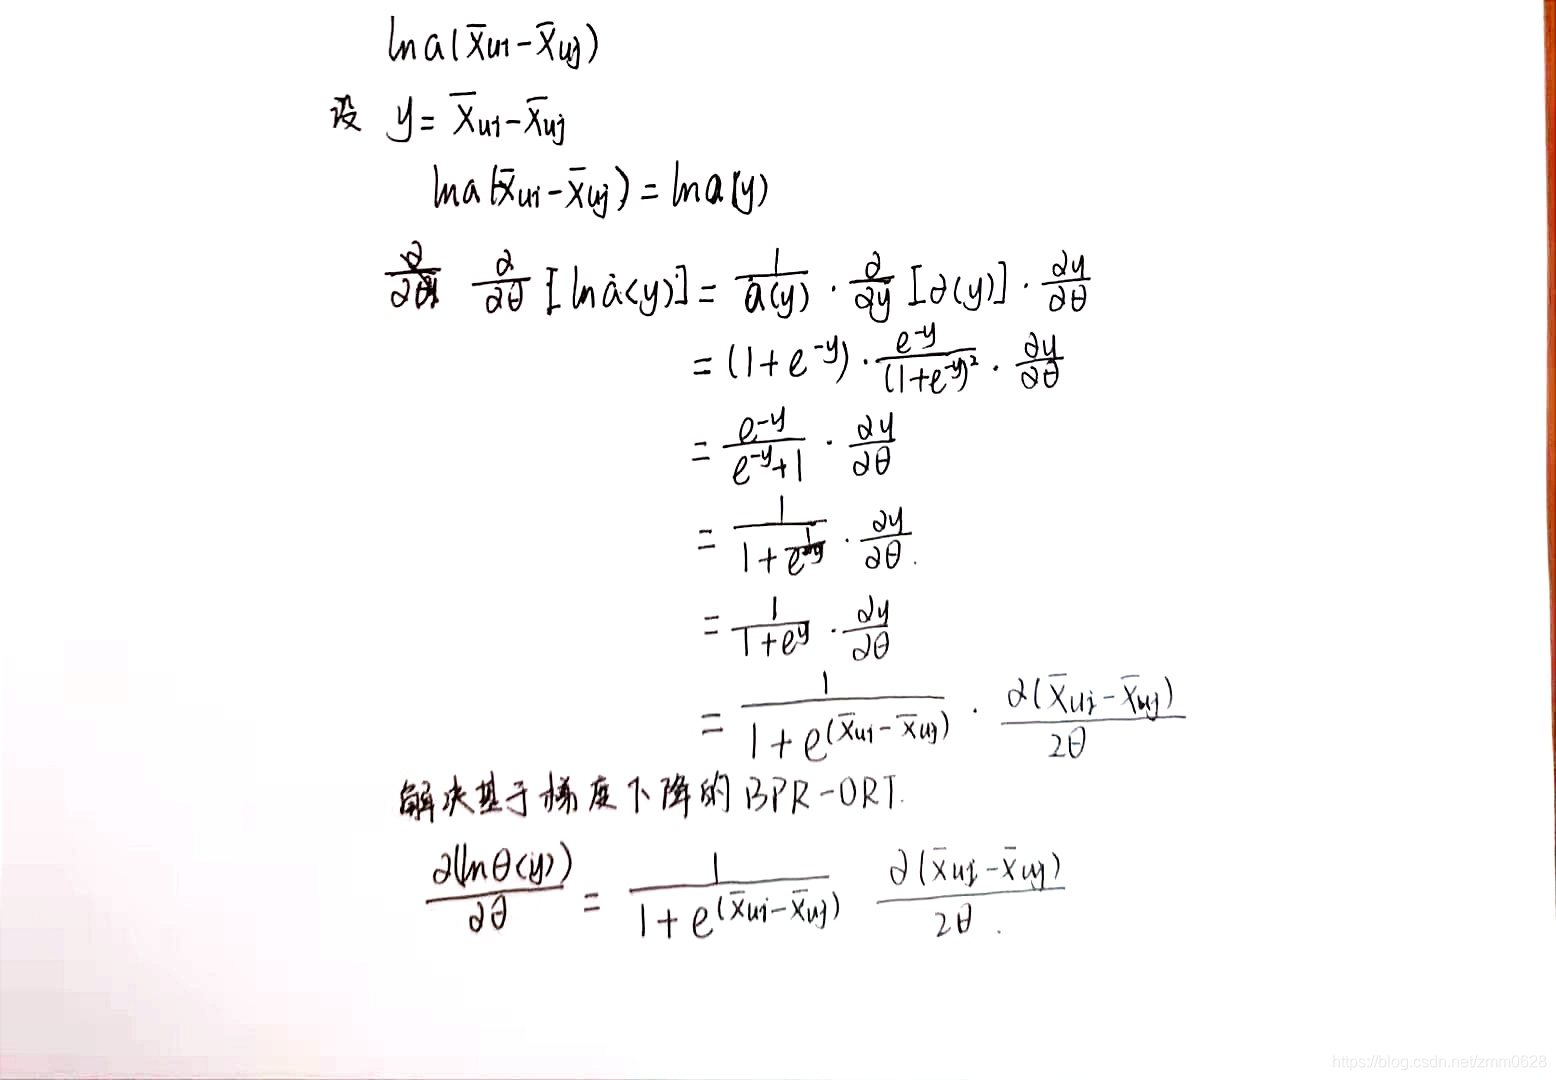 ln a(x̄ui - x̄uj)
设 y = x̄ui - x̄uj
ln a(x̄ui - x̄uj) = ln a(y)
∂/∂θ [ln a(y)] = 1/a(y) · ∂/∂y [∂(y)] · ∂y/∂θ
= (1 + e^-y) · e^-y/(1+e^-y)² · ∂y/∂θ
= e^-y/(e^-y + 1) · ∂y/∂θ
= 1/(1 + 1/e^-y) · ∂y/∂θ.
= 1/(1 + e^y) · ∂y/∂θ
= 1/(1 + e^(x̄ui - x̄uj)) · ∂(x̄ui - x̄uj)/2θ
解决基于梯度下降的BPR-ORT.
∂(ln θ(y))/∂θ = 1/(1 + e^(x̄ui - x̄uj)) ∂(x̄ui - x̄uj)/2θ.
https://blog.csdn.net/zmm0628